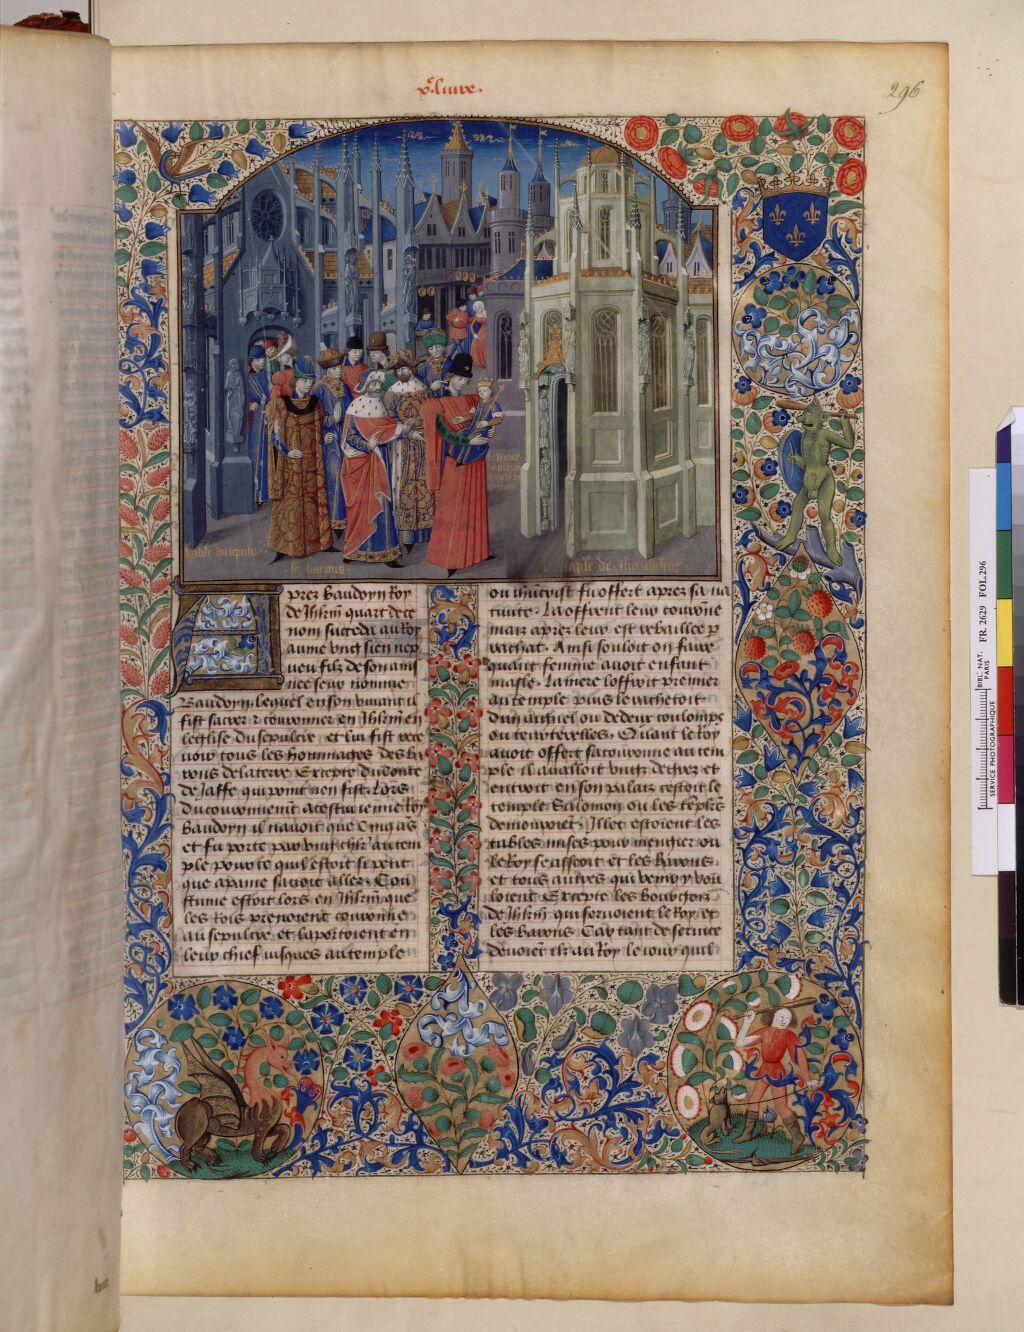 xe. livre.
296
prez Baudoyn Roy
de Jhrlm quart de ce
nom succeda au Roy
aume ung sien nep
veu filz de son ains
nee seur nomme
Baudoyn. Lequel en son vivant il
fist sacrer & couronner en Jhrlm en
leglise du sepulcre. et lui fist rece
voir tous les hommages des ba
rons de la terre Excepte du conte
de Jaffe qui point nen fist. Lors
du couronnement a cestui cienne Roy
Baudoyn il navoit que cinq ans
et fu porte par au tem
ple pour ce quil estoit si petit
que a paine savoit aller. Cou
stume estoit lors en Jhrlm que
les Rois prenoient couronne
au sepulcre. et la portoient en
leur chief jusques au temple
ou Jhucrist fu offert apres sa na
tivite. La offrent leur couronne
mais apres leur est rebaillee p
rachat. Ainsi souloit on faire
quant femme avoit enfant
masle. La mere loffroit premier
au temple puis le rachetoit
dun aignel ou de deux coulomps
ou teurterelles. Quant le Roy
avoit offert sa couronne au tem
ple il avalloit ungz degrez et
entroit en son palais cestoit le
temple Salomon ou les templiers
demouroient. Illec estoient les
tables mises pour mengier ou
le Roy se asseoit et les Barons
et tous autres qui vou
loient. Excepte les Bourgeois
de Jhrlm qui servoient le Roy et
les Barons. Car tant de service
devoient ilz au Roy le jour quil
BIBL. NAT. FR. 2629 FOL.296
PARIS
SERVICE PHOTOGRAPHIQUE